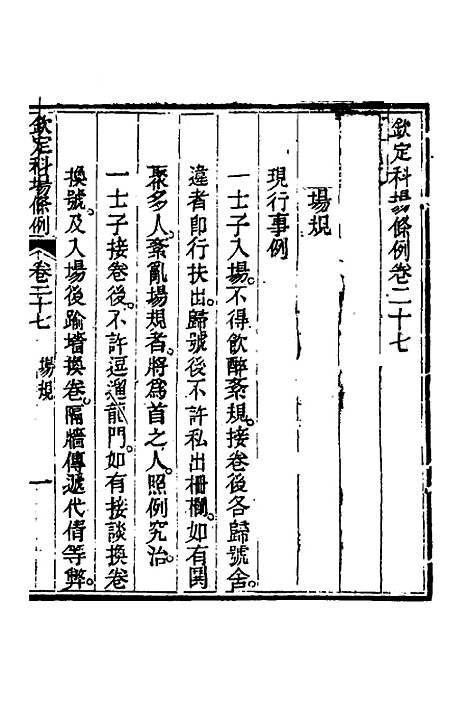 欽定科場條例卷二十七
場規
現行事例
一士子入場。不得飲醉紊規。接卷後各歸號舍。
違者即行扶出。歸號後不許私出柵欄。如有闖
聚多人。紊亂場規者。將為首之人。照例究治。
一士子接卷後。不許逗遛龍門。如有接談換卷
換號。及入場後踰墻換卷。隔牆傳遞代倩等弊。
欽定科場條例 卷二十七 場規 一